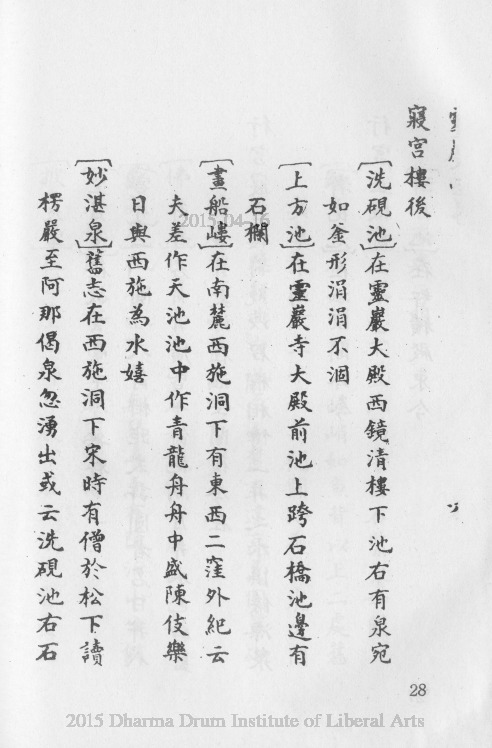 寢宮樓後
［洗硯池］在靈巖大殿西鏡清樓下池右有泉宛
如釜形涓涓不涸
［上方池］在靈巖寺大殿前池上跨石橋池邊有
石欄
［畫船嶁］在南麓西施洞下有東西二窪外紀云
夫差作天池池中作青龍舟舟中盛陳伎樂
日與西施為水嬉
［妙湛泉］舊志在西施洞下宋時有僧於松下讀
楞嚴至阿那偈泉忽湧出或云洗硯池右石
28
2015-04-16
2015 Dharma Drum Institute of Liberal Arts